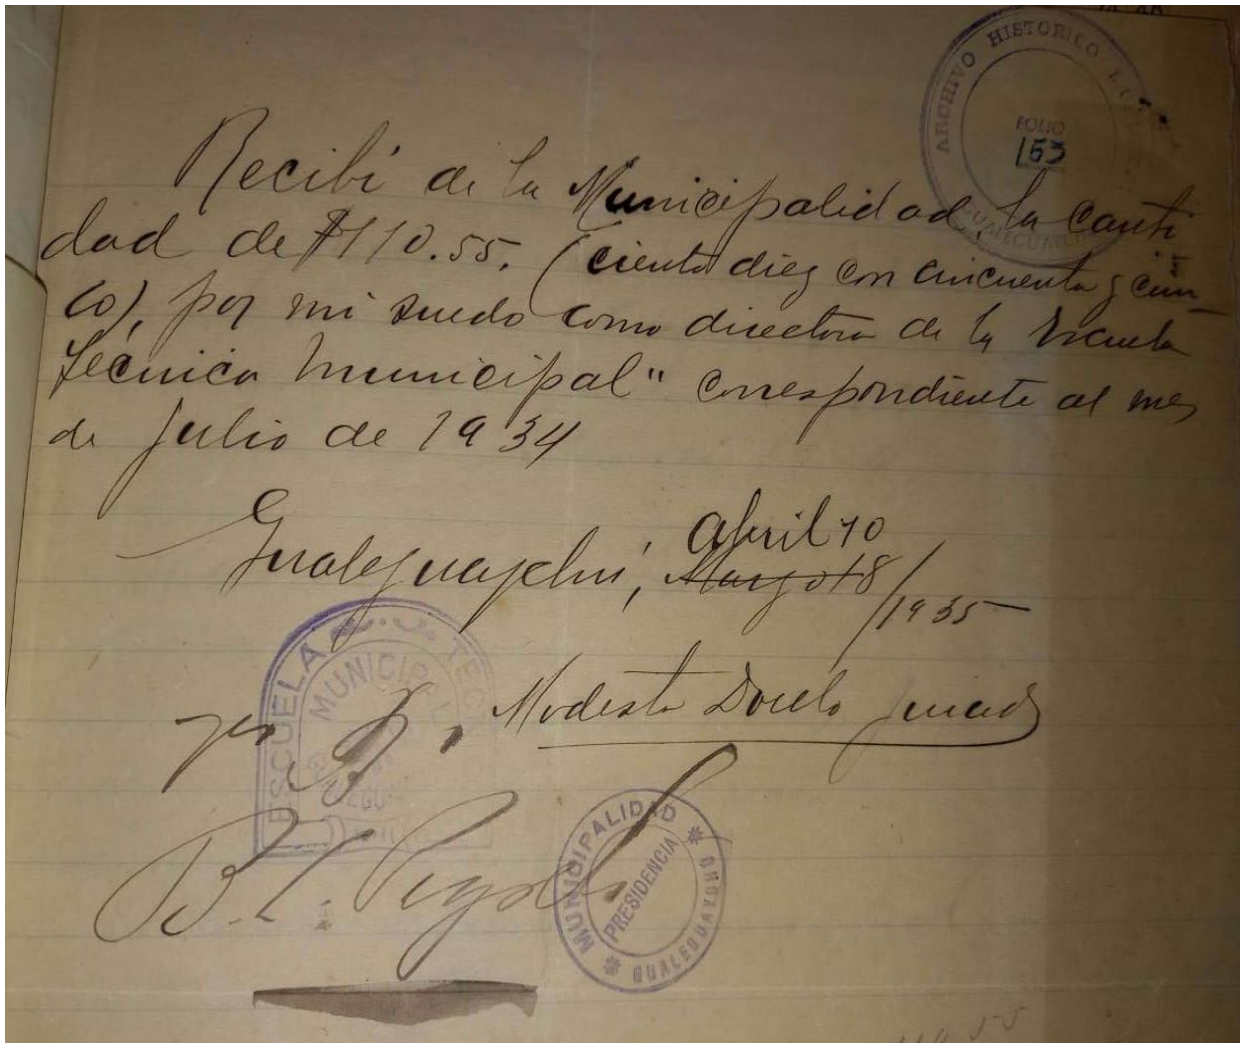 ARCHIVO HISTORICO
FOLIO
153
Recibí de la Municipalidad, la canti
dad de $110.55, (ciento diez con cincuenta y cin-
co), por mi sueldo como directora de la Escuela
Técnica Municipal" correspondiente al mes
de julio de 1934
Gualeguaychú, abril 10
Marzo 18/1935
ESCUELA TECNICA
MUNICIPAL
Modesta
B. C.
MUNICIPALIDAD
PRESIDENCIA
GUALEGUAYCHU